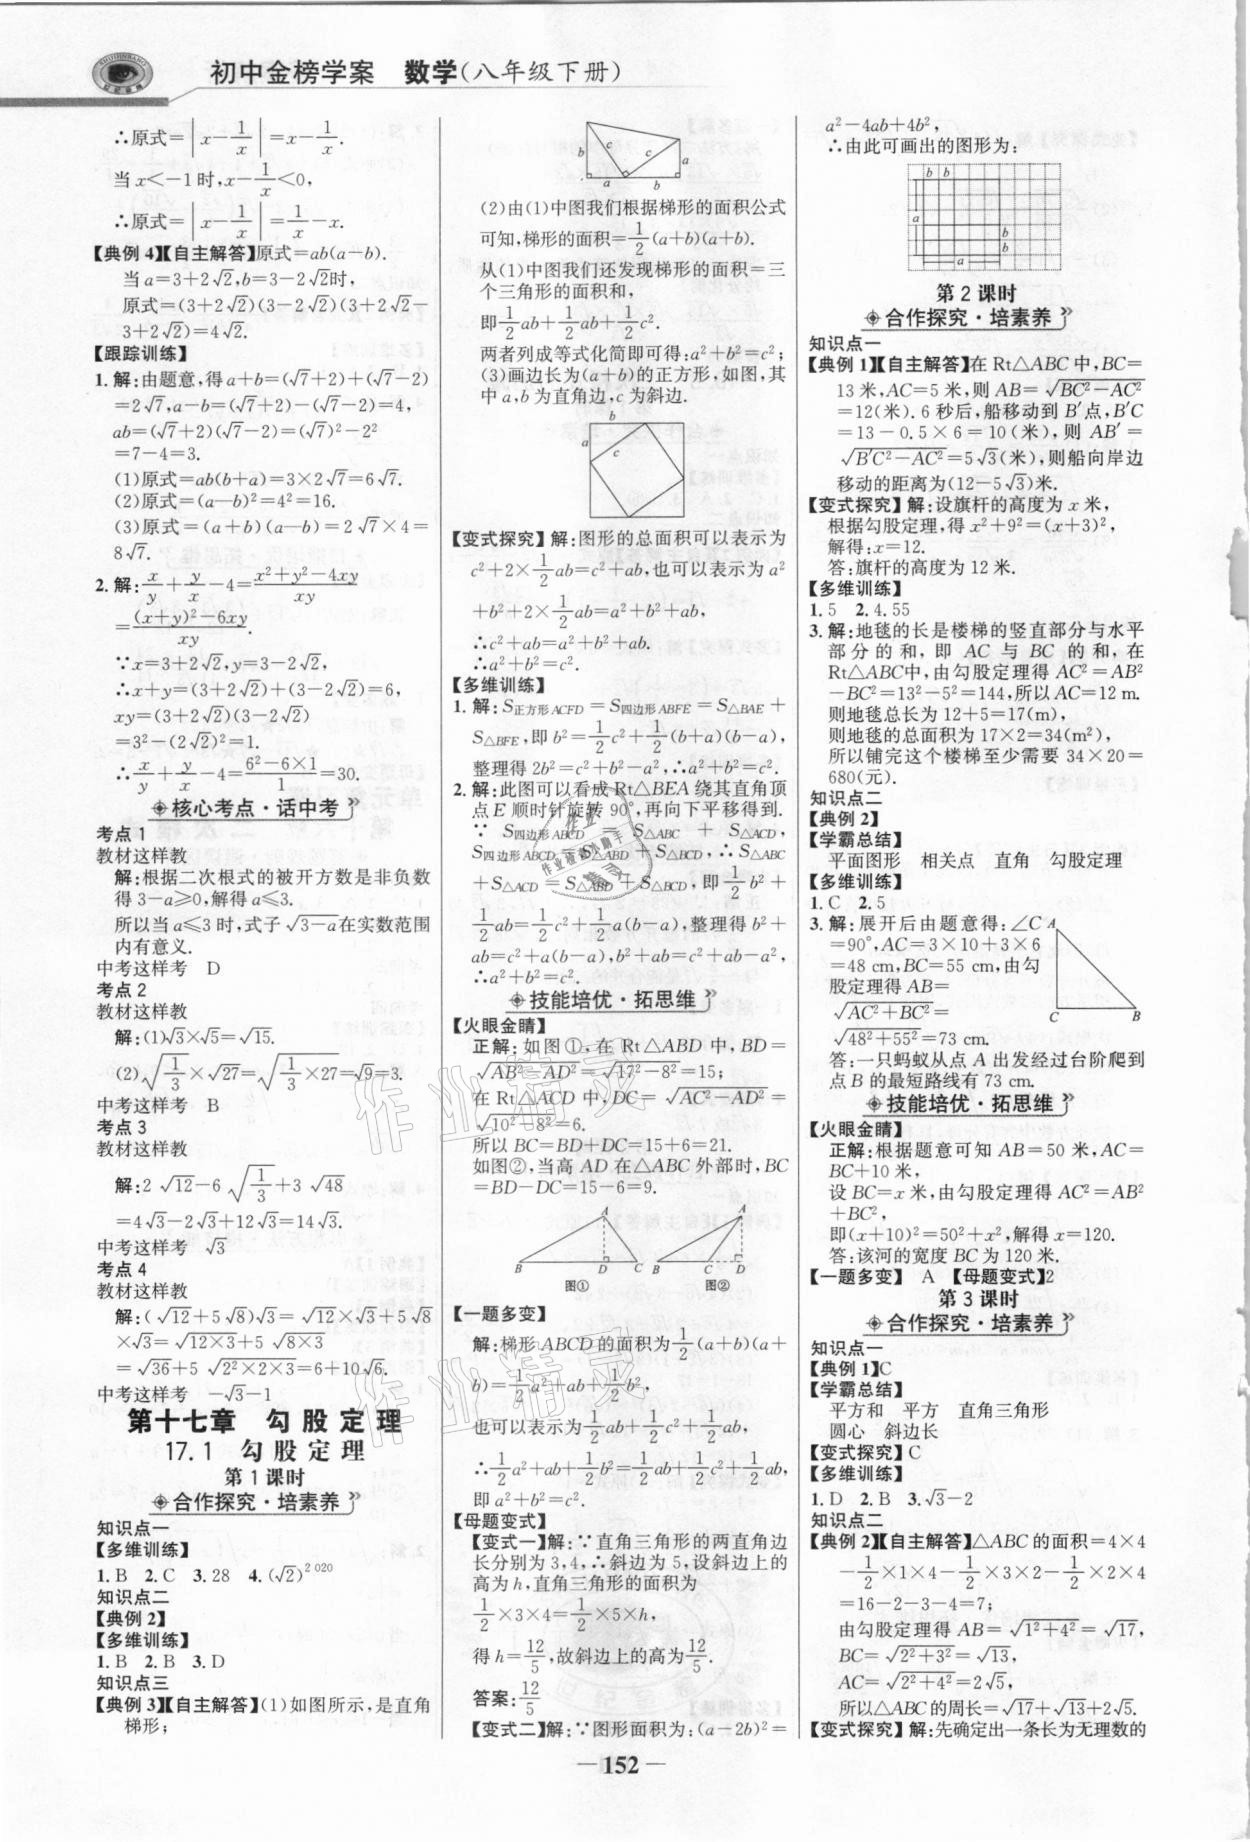 初中金榜学案 数学(八年级下册)
∴原式=|x-1/x|=x-1/x.
当x<-1时,x-1/x<0,
∴原式=|x-1/x|=1/x-x.
【典例4】【自主解答】原式=ab(a-b).
当a=3+2√2,b=3-2√2时,
原式=(3+2√2)(3-2√2)(3+2√2-
3+2√2)=4√2.
【跟踪训练】
1.解:由题意,得a+b=(√7+2)+(√7-2)
=2√7,a-b=(√7+2)-(√7-2)=4,
ab=(√7+2)(√7-2)=(√7)²-2²
=7-4=3.
(1)原式=ab(b+a)=3×2√7=6√7.
(2)原式=(a-b)²=4²=16.
(3)原式=(a+b)(a-b)=2√7×4=
8√7.
2.解:x/y+y/x-4=(x²+y²-4xy)/xy
=((x+y)²-6xy)/xy.
∵x=3+2√2,y=3-2√2,
∴x+y=(3+2√2)+(3-2√2)=6,
xy=(3+2√2)(3-2√2)
=3²-(2√2)²=1.
∴x/y+y/x-4=(6²-6×1)/1=30.
核心考点·话中考
考点1
教材这样教
解:根据二次根式的被开方数是非负数
得3-a≥0,解得a≤3.
所以当a≤3时,式子√(3-a)在实数范围
内有意义.
中考这样考 D
考点2
教材这样教
解:(1)√3×√5=√15.
(2)√(1/3)×√27=√(1/3×27)=√9=3.
中考这样考 B
考点3
教材这样教
解:2√12-6√(1/3)+3√48
=4√3-2√3+12√3=14√3.
中考这样考 √3
考点4
教材这样教
解:(√12+5√8)√3=√12×√3+5√8
×√3=√(12×3)+5√(8×3)
=√36+5√(2²×2×3)=6+10√6.
中考这样考 -√3-1
第十七章 勾股定理
17.1 勾股定理
第1课时
合作探究·培素养
知识点一
【多维训练】
1.B 2.C 3.28 4.(√2)²⁰²⁰
知识点二
【典例2】
【多维训练】
1.B 2.B 3.D
知识点三
【典例3】【自主解答】(1)如图所示,是直角
梯形;
b c c a
a b
(2)由(1)中图我们根据梯形的面积公式
可知,梯形的面积=1/2(a+b)(a+b).
从(1)中图我们还发现梯形的面积=三
个三角形的面积和,
即1/2ab+1/2ab+1/2c².
两者列成等式化简即可得:a²+b²=c²;
(3)画边长为(a+b)的正方形,如图,其
中a,b为直角边,c为斜边.
b
a c
【变式探究】解:图形的总面积可以表示为
c²+2×1/2ab=c²+ab,也可以表示为a²
+b²+2×1/2ab=a²+b²+ab,
∴c²+ab=a²+b²+ab,
∴a²+b²=c².
【多维训练】
1.解:S正方形ACFD=S四边形ABFE=S△BAE+
S△BFE,即b²=1/2c²+1/2(b+a)(b-a),
整理得2b²=c²+b²-a²,∴a²+b²=c².
2.解:此图可以看成Rt△BEA绕其直角顶
点E顺时针旋转90°,再向下平移得到.
∵S四边形ABCD=S△ABC+S△ACD,
S四边形ABCD=S△ABD+S△BCD,∴S△ABC
+S△ACD=S△ABD+S△BCD,即1/2b²+
1/2ab=1/2c²+1/2a(b-a),整理得b²+
ab=c²+a(b-a),b²+ab=c²+ab-a²,
∴a²+b²=c².
技能培优·拓思维
【火眼金睛】
正解:如图①,在Rt△ABD中,BD=
√(AB²-AD²)=√(17²-8²)=15;
在Rt△ACD中,DC=√(AC²-AD²)=
√(10²-8²)=6.
所以BC=BD+DC=15+6=21.
如图②,当高AD在△ABC外部时,BC
=BD-DC=15-6=9.
A A
B D C B C D
图① 图②
【一题多变】
解:梯形ABCD的面积为1/2(a+b)(a+
b)=1/2a²+ab+1/2b²,
也可以表示为1/2ab+1/2c²+1/2ab,
∴1/2a²+ab+1/2b²=1/2ab+1/2c²+1/2ab,
即a²+b²=c².
【母题变式】
【变式一】解:∵直角三角形的两直角边
长分别为3,4,∴斜边为5,设斜边上的
高为h,直角三角形的面积为
1/2×3×4=1/2×5×h,
得h=12/5,故斜边上的高为12/5.
答案:12/5
【变式二】解:∵图形面积为:(a-2b)²=
a²-4ab+4b²,
∴由此可画出的图形为:
b b
a
b
b
a
第2课时
合作探究·培素养
知识点一
【典例1】【自主解答】在Rt△ABC中,BC=
13米,AC=5米,则AB=√(BC²-AC²)
=12(米).6秒后,船移动到B′点,B′C
=13-0.5×6=10(米),则AB′=
√(B′C²-AC²)=5√3(米),则船向岸边
移动的距离为(12-5√3)米.
【变式探究】解:设旗杆的高度为x米,
根据勾股定理,得x²+9²=(x+3)²,
解得:x=12.
答:旗杆的高度为12米.
【多维训练】
1.5 2.4.55
3.解:地毯的长是楼梯的竖直部分与水平
部分的和,即AC与BC的和,在
Rt△ABC中,由勾股定理得AC²=AB²
-BC²=13²-5²=144,所以AC=12 m.
则地毯总长为12+5=17(m),
则地毯的总面积为17×2=34(m²),
所以铺完这个楼梯至少需要34×20=
680(元).
知识点二
【典例2】
【学霸总结】
平面图形 相关点 直角 勾股定理
【多维训练】
1.C 2.5
3.解:展开后由题意得:∠C
=90°,AC=3×10+3×6
=48 cm,BC=55 cm,由勾
股定理得AB=
√(AC²+BC²)=
√(48²+55²)=73 cm.
A
C B
答:一只蚂蚁从点A出发经过台阶爬到
点B的最短路线有73 cm.
技能培优·拓思维
【火眼金睛】
正解:根据题意可知AB=50米,AC=
BC+10米,
设BC=x米,由勾股定理得AC²=AB²
+BC²,
即(x+10)²=50²+x²,解得x=120.
答:该河的宽度BC为120米.
【一题多变】 A 【母题变式】2
第3课时
合作探究·培素养
知识点一
【典例1】C
【学霸总结】
平方和 平方 直角三角形
圆心 斜边长
【变式探究】C
【多维训练】
1.D 2.B 3.√3-2
知识点二
【典例2】【自主解答】△ABC的面积=4×4
-1/2×1×4-1/2×3×2-1/2×2×4
=16-2-3-4=7;
由勾股定理得AB=√(1²+4²)=√17,
BC=√(2²+3²)=√13,
AC=√(2²+4²)=2√5,
所以△ABC的周长=√17+√13+2√5.
【变式探究】解:先确定出一条长为无理数的
— 152 —
作业精灵
作业精灵